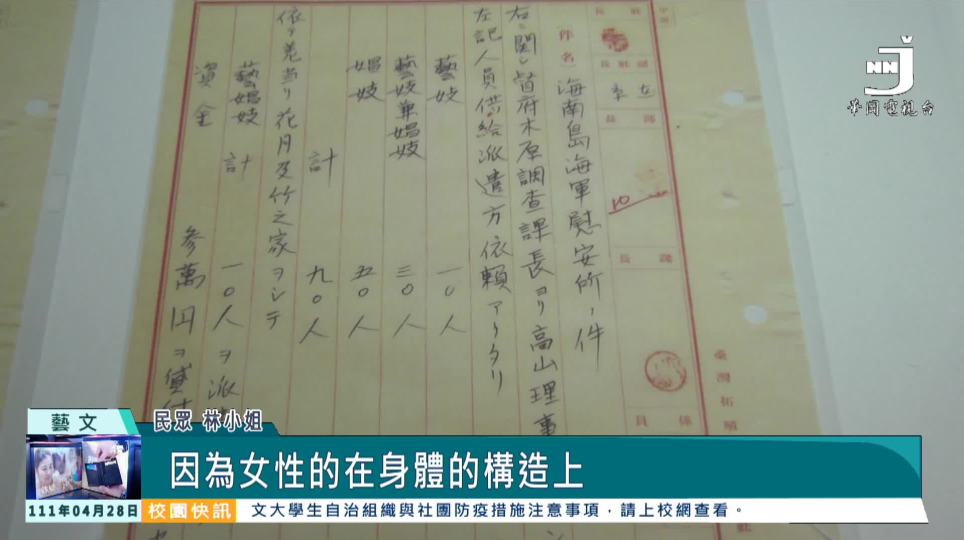 件名 海南島海軍慰安所ノ件
右ニ関シ督府木原調査課長ヨリ高山理事
左記人員供給派遣方依頼アリタリ
藝妓 一〇人
藝妓兼娼妓 三〇人
娼妓 五〇人
計 九〇人
依テ差当リ花月及竹之家ヲシテ
藝娼妓 計 一〇人ヲ派
資金 参萬円ヲ貸
臺灣拓殖
係員
課長
部長
NNJ
華岡電視台
藝文
民眾 林小姐
因為女性的在身體的構造上
111年04月28日
校園快訊
文大學生自治組織與社團防疫措施注意事項，請上校網查看。